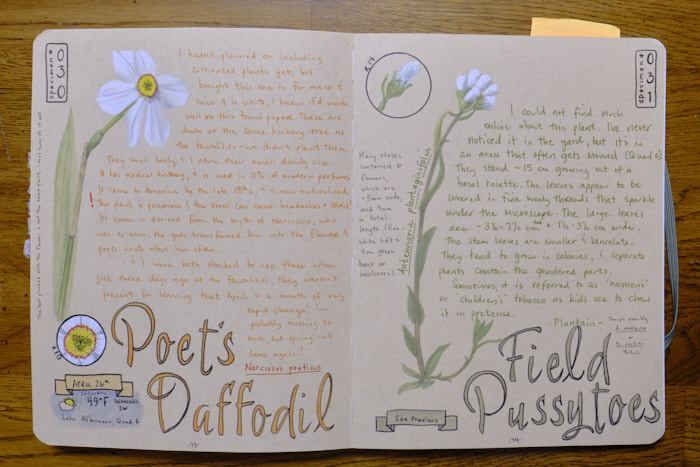 specimen #
030
I hadn't planned on including
cultivated plants yet, but
brought this one in for macro &
since it is white, I knew it'd work
well on this tonal paper. These are
down at the same hickory tree as
the fawnlilies - we didn't plant them.
They smell lovely & I adore their small dainty size.
It has medical history, & is used in 11% of modern perfumes.
It came to America by the late 18ᵗʰc, & is now naturalized.
! The plant is poisonous & the smell can cause headaches + vomit!
Its name is derived from the myth of Narcissus, who
was so vain, the gods transformed him into the flower &
poets wrote about him often.
I were both shocked to see these when
just three days ago at the fawnlilies, they weren't
present. I'm learning that April is a month of very
rapid change! I'm
probably missing so
much, but spring will
come again!
Narcissus poeticus
x10
Poet's
Daffodil
April 26ᵗʰ
Saturday
49°F
Late Afternoon, Quad B
-73-
x14
specimen #
031
Many stalks
contained 8
flowers,
which are
~5mm wide,
and 9mm
in total
length (5mm
white tuft &
4mm green
bract or
involucres).
Antennaria plantaginifolia
I could not find much
online about this plant. I've never
noticed it in the yard, but it's in
an area that often gets mowed (Quad D).
They stand ~15cm growing out of a
basal rosette. The leaves appear to be
covered in fine wooly threads that sparkle
under the microscope. The large leaves
are ~3½-7½ cm × 1½-3½ cm wide.
The stem leaves are smaller & lancelate.
They tend to grow in colonies, & separate
plants contain the gendered parts.
Sometimes, it is referred to as 'women's'
or 'children's' tobacco as kids use to chew
it in pretense.
-Plantain-
Though possibly
Field
Pussytoes
See Previous
-74-